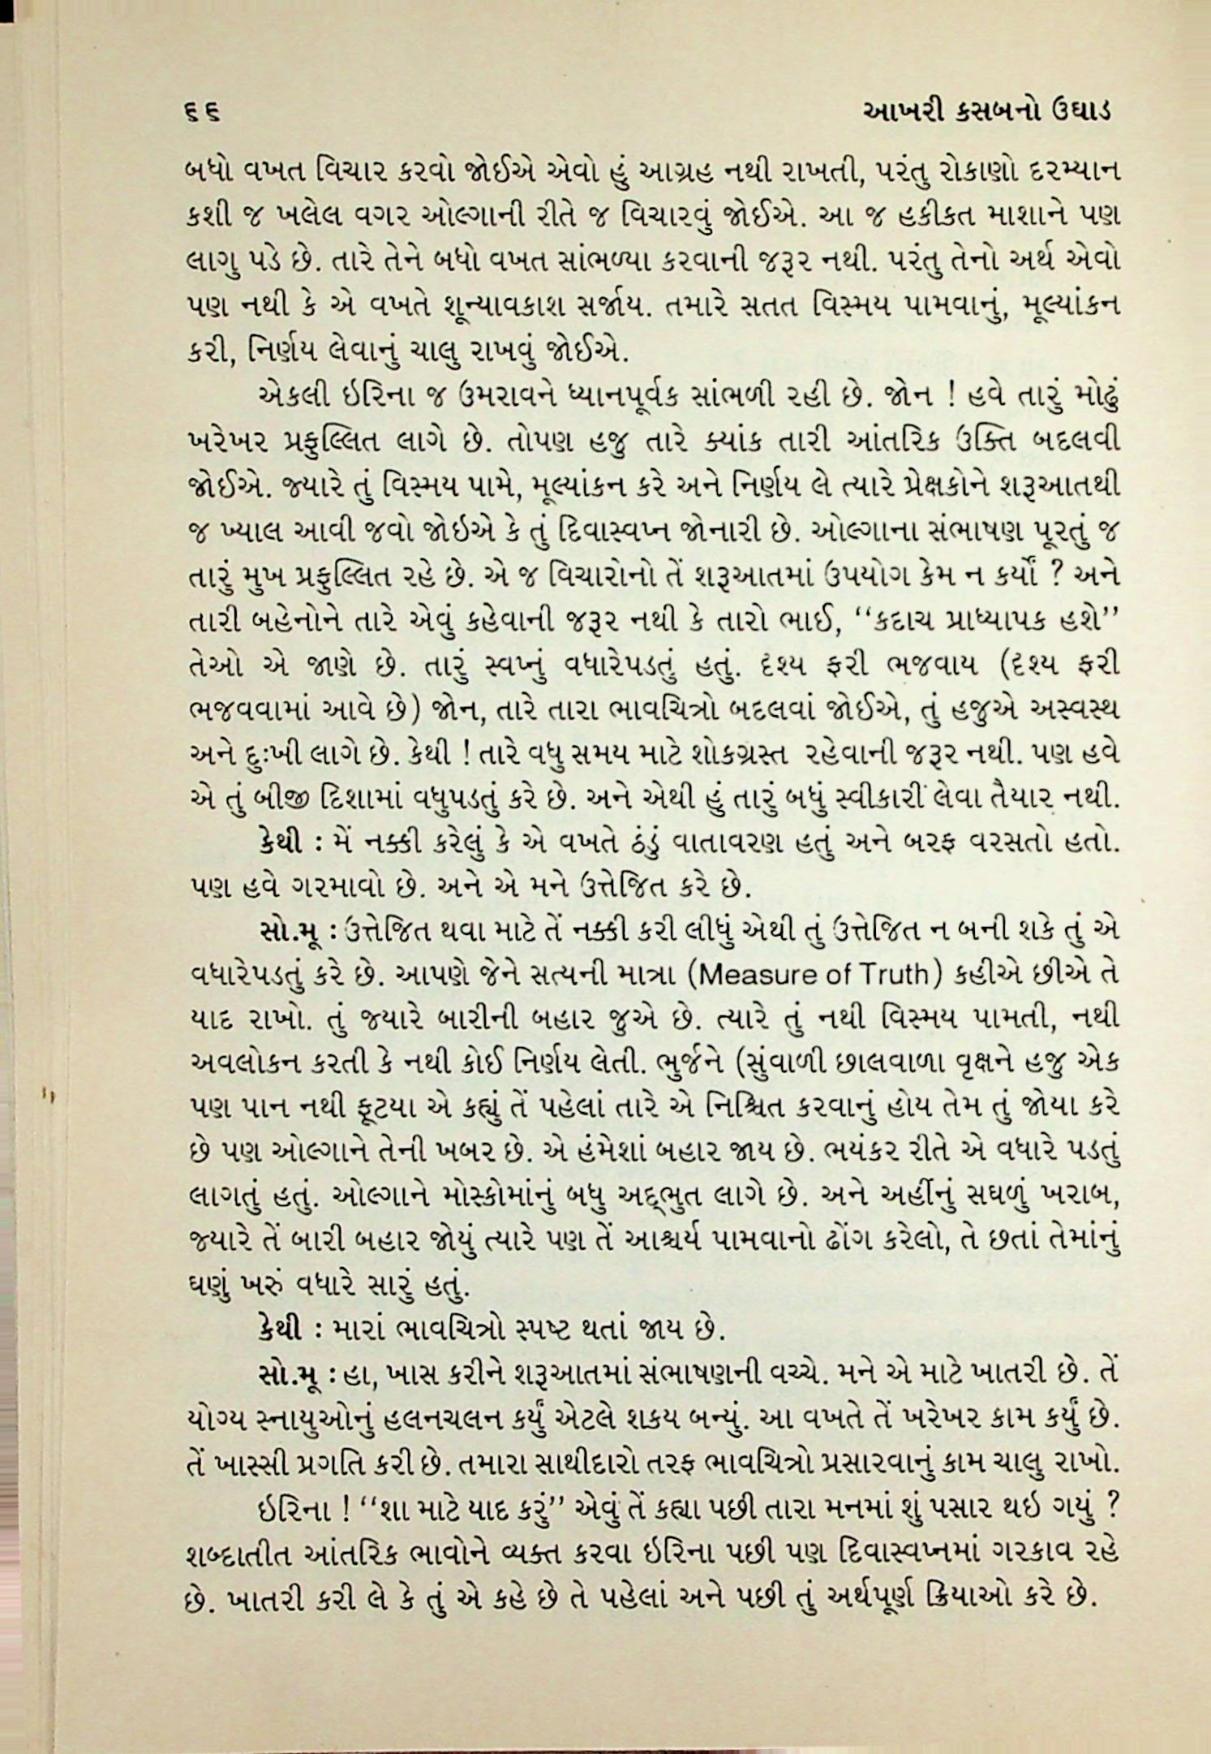 ૬૬ આખરી કસબનો ઉઘાડ
બધો વખત વિચાર કરવો જોઈએ એવો હું આગ્રહ નથી રાખતી, પરંતુ રોકાણો દરમ્યાન
કશી જ ખલેલ વગર ઓલ્ગાની રીતે જ વિચારવું જોઈએ. આ જ હકીકત માશાને પણ
લાગુ પડે છે. તારે તેને બધો વખત સાંભળ્યા કરવાની જરૂર નથી. પરંતુ તેનો અર્થ એવો
પણ નથી કે એ વખતે શૂન્યાવકાશ સર્જાય. તમારે સતત વિસ્મય પામવાનું, મૂલ્યાંકન
કરી, નિર્ણય લેવાનું ચાલુ રાખવું જોઈએ.
એકલી ઇરિના જ ઉમરાવને ધ્યાનપૂર્વક સાંભળી રહી છે. જોન ! હવે તારું મોઢું
ખરેખર પ્રફુલ્લિત લાગે છે. તોપણ હજુ તારે ક્યાંક તારી આંતરિક ઉક્તિ બદલવી
જોઈએ. જ્યારે તું વિસ્મય પામે, મૂલ્યાંકન કરે અને નિર્ણય લે ત્યારે પ્રેક્ષકોને શરૂઆતથી
જ ખ્યાલ આવી જવો જોઇએ કે તું દિવાસ્વપ્ન જોનારી છે. ઓલ્ગાના સંભાષણ પૂરતું જ
તારું મુખ પ્રફુલ્લિત રહે છે. એ જ વિચારોનો તેં શરૂઆતમાં ઉપયોગ કેમ ન કર્યો ? અને
તારી બહેનોને તારે એવું કહેવાની જરૂર નથી કે તારો ભાઈ, ‘‘કદાચ પ્રાધ્યાપક હશે’’
તેઓ એ જાણે છે. તારું સ્વપ્નું વધારેપડતું હતું. દૃશ્ય ફરી ભજવાય (દૃશ્ય ફરી
ભજવવામાં આવે છે) જોન, તારે તારા ભાવચિત્રો બદલવાં જોઈએ, તું હજુએ અસ્વસ્થ
અને દુઃખી લાગે છે. કેથી ! તારે વધુ સમય માટે શોકગ્રસ્ત રહેવાની જરૂર નથી. પણ હવે
એ તું બીજી દિશામાં વધુપડતું કરે છે. અને એથી હું તારું બધું સ્વીકારી લેવા તૈયાર નથી.
કેથી : મેં નક્કી કરેલું કે એ વખતે ઠંડું વાતાવરણ હતું અને બરફ વરસતો હતો.
પણ હવે ગરમાવો છે. અને એ મને ઉત્તેજિત કરે છે.
સો.મૂ : ઉત્તેજિત થવા માટે તેં નક્કી કરી લીધું એથી તું ઉત્તેજિત ન બની શકે તું એ
વધારેપડતું કરે છે. આપણે જેને સત્યની માત્રા (Measure of Truth) કહીએ છીએ તે
યાદ રાખો. તું જ્યારે બારીની બહાર જુએ છે. ત્યારે તું નથી વિસ્મય પામતી, નથી
અવલોકન કરતી કે નથી કોઈ નિર્ણય લેતી. ભુર્જને (સુંવાળી છાલવાળા વૃક્ષને હજુ એક
પણ પાન નથી ફૂટયા એ કહ્યું તેં પહેલાં તારે એ નિશ્ચિત કરવાનું હોય તેમ તું જોયા કરે
છે પણ ઓલ્ગાને તેની ખબર છે. એ હંમેશાં બહાર જાય છે. ભયંકર રીતે એ વધારે પડતું
લાગતું હતું. ઓલ્ગાને મોસ્કોમાંનું બધુ અદ્ભુત લાગે છે. અને અહીંનું સઘળું ખરાબ,
જ્યારે તેં બારી બહાર જોયું ત્યારે પણ તેં આશ્ચર્ય પામવાનો ઢોંગ કરેલો, તે છતાં તેમાંનું
ઘણું ખરું વધારે સારું હતું.
કેથી : મારાં ભાવચિત્રો સ્પષ્ટ થતાં જાય છે.
સો.મૂ : હા, ખાસ કરીને શરૂઆતમાં સંભાષણની વચ્ચે. મને એ માટે ખાતરી છે. તેં
યોગ્ય સ્નાયુઓનું હલનચલન કર્યું એટલે શકય બન્યું. આ વખતે તેં ખરેખર કામ કર્યું છે.
તેં ખાસ્સી પ્રગતિ કરી છે. તમારા સાથીદારો તરફ ભાવચિત્રો પ્રસારવાનું કામ ચાલુ રાખો.
ઇરિના ! ‘‘શા માટે યાદ કરું’’ એવું તેં કહ્યા પછી તારા મનમાં શું પસાર થઇ ગયું ?
શબ્દાતીત આંતરિક ભાવોને વ્યક્ત કરવા ઇરિના પછી પણ દિવાસ્વપ્નમાં ગરકાવ રહે
છે. ખાતરી કરી લે કે તું એ કહે છે તે પહેલાં અને પછી તું અર્થપૂર્ણ ક્રિયાઓ કરે છે.